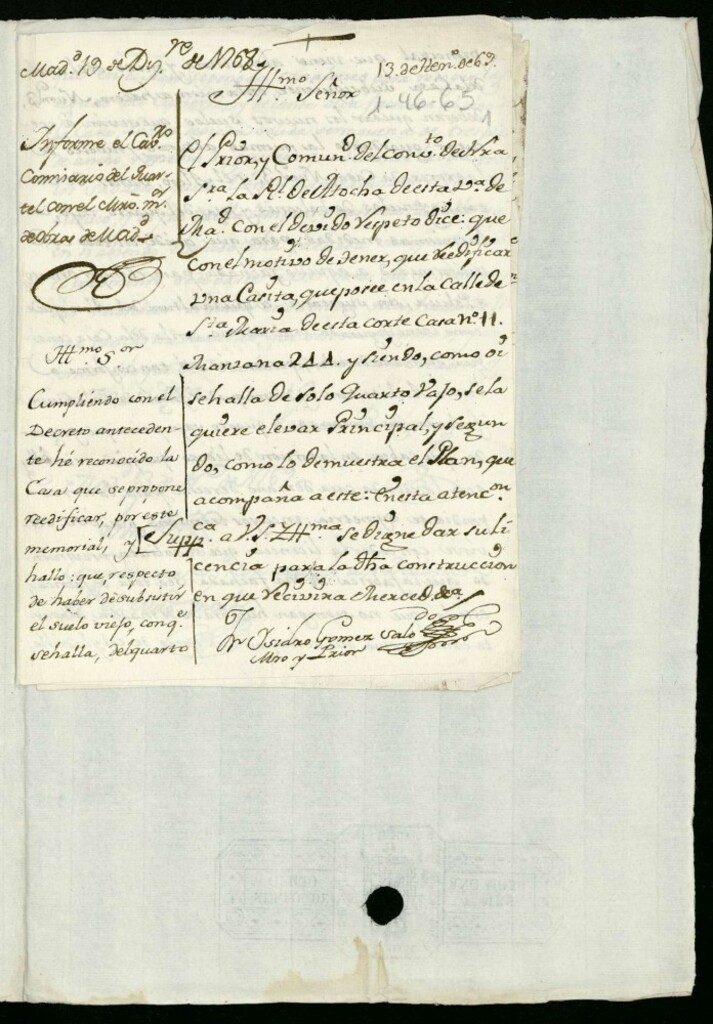 Mad.d 19 de Diz.re de 1768
13. de Hen.o de 69.
Ill.mo Señor
1-46-65
1
Informe el Cav.ro
Comisario del Quar-
tel con el Mro. m.or
de obras de Mad.d
El Prior, y Comun.d del conv.to de Nra
S.ra La R.l de Atocha de esta v.a de
Ma.d con el devido respeto dice: que
con el motivo de tener, que reedificar
una Casita, que posee en la Calle de
S.ta Maria de esta corte Casa n.o 11.
Manzana 244. y siendo, como oi
se halla de solo Quarto vajo, se la
quiere elevar Principal, y segun
do, como lo demuestra el Plan, que
acompaña a este: En esta atenc.on
Supp.ca a V.S. Ill.ma se digne dar su li
cencia para la dha construccion
en que recivira Merced. &.a
Fr Isidro Gomez Salo
Mro y Prior
Ill.mo S.or
Cumpliendo con el
Decreto anteceden-
te hé reconocido la
Casa que se propone
reedificar, por este
memorial, y
hallo: que, respecto
de haber de subsistir
el suelo viejo, con q.e
se halla, del quarto